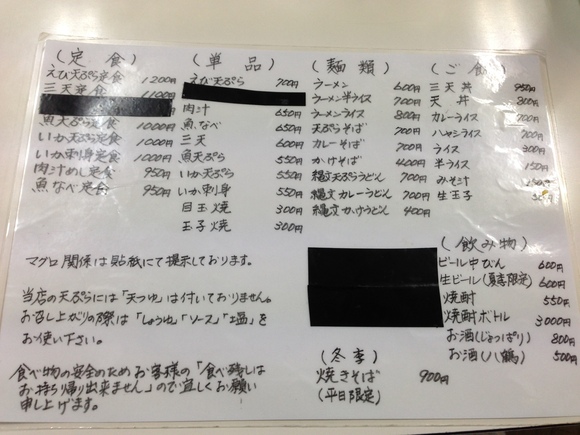 (定食)
えび天ぷら定食 1200円
三天定食 1100円
魚天ぷら定食 1000円
いか天ぷら定食 1000円
いか刺身定食 1000円
肉汁めし定食 950円
魚なべ定食 950円
(単品)
えび天ぷら 700円
肉汁 650円
魚なべ 650円
三天 600円
魚天ぷら 550円
いか天ぷら 550円
いか刺身 550円
目玉焼 300円
玉子焼 300円
(麺類)
ラーメン 600円
ラーメン半ライス 700円
ラーメンライス 800円
天ぷらそば 700円
カレーそば 700円
かけそば 400円
縄文天ぷらうどん 700円
縄文カレーうどん 700円
縄文かけうどん 400円
(ご飯)
三天丼 950円
天丼 800円
カレーライス 700円
ハヤシライス 700円
ライス 300円
半ライス 150円
みそ汁
生玉子
(飲み物)
ビール中びん 600円
生ビール(夏季限定) 600円
焼酎 550円
焼酎ボトル 3000円
お酒(じょっぱり) 800円
お酒(八鶴) 500円
(冬季)
焼きそば 900円
(平日限定)
マグロ関係は貼紙にて提示しております。
当店の天ぷらには「天つゆ」は付いておりません。
お召し上がりの際は「しょうゆ」「ソース」「塩」を
お使い下さい。
食べ物の安全のためお客様の「食べ残しは
お持ち帰り出来ません」ので宜しくお願い
申し上げます。